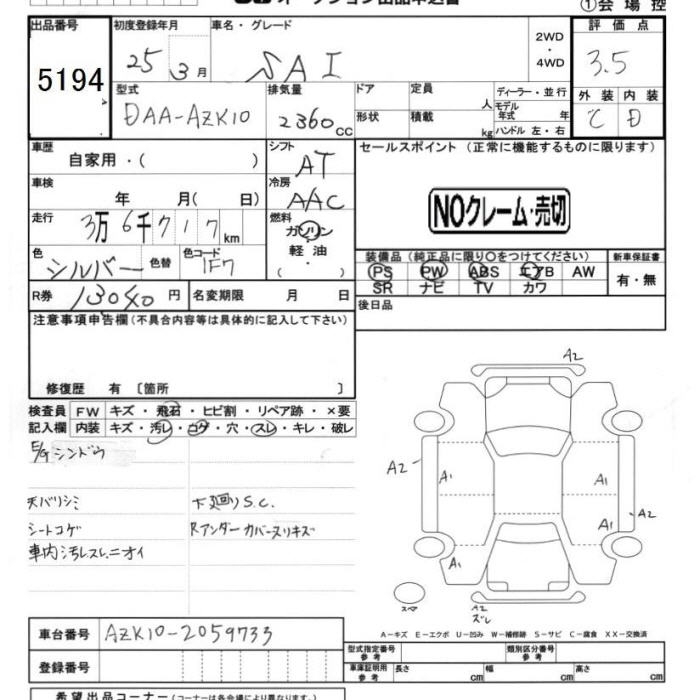 ①会場控
出品番号 初度登録年月 車名・グレード 2WD・4WD 評価点
5194 25 3月 SAI 3.5
型式 排気量 ドア 定員 人 ディーラー・並行 外装 内装
DAA-AZK10 2360cc 形状 積載 kg モデル年式 年 ハンドル 左・右 C D
車歴 自家用・( ) シフト AT セールスポイント (正常に機能するものに限ります)
車検 年 月(日) 冷房 AAC NOクレーム・売切
走行 3万6千717km 燃料 ガソリン・軽油・( )
色 シルバー 色替 色コード 1F7
装備品 (純正品に限り○をつけてください) 新車保証書
PS PW ABS エアB AW 有・無
SR ナビ TV カワ
R券 13040円 名変期限 月 日 後日品
注意事項申告欄 (不具合内容等は具体的に記入して下さい)
修復歴 有 〔箇所 〕
検査員 FW キズ・飛石・ヒビ割・リペア跡・×要
記入欄 内装 キズ・汚レ・コゲ・穴・スレ・キレ・破レ
E/Gシンドウ
天バリシミ 下廻りS.C.
シートコゲ Rアンダーカバーヌリキズ
車内汚レスレニオイ
A2
A2 A1 A1
A1 A2
A1
スペア A2
ズレ
A−キズ E−エクボ U−凹み W−補修跡 S−サビ C−腐食 XX−交換済
車台番号 AZK10-2059733
登録番号
型式指定番号 参考 類別区分番号 参考
車庫証明用 参考 長さ cm 幅 cm 高さ cm
希望出品コーナー (コーナーは各会場により異なります)